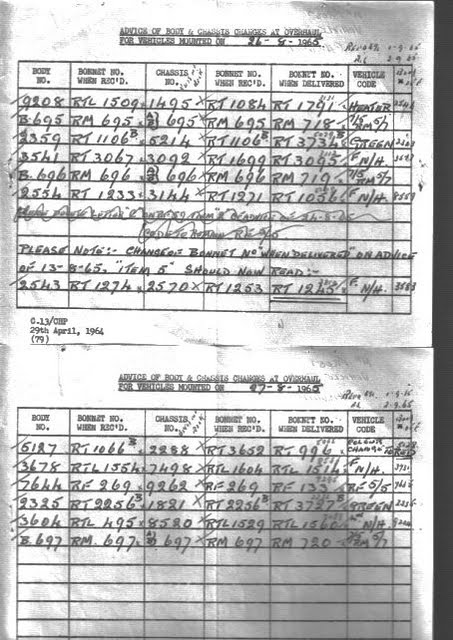 ADVICE OF BODY & CHASSIS CHARGES AT OVERHAUL
FOR VEHICLES MOUNTED ON 26-8-1965
BODY NO. BONNET NO. WHEN REC'D. CHASSIS NO. BONNET NO. WHEN REC'D. BONNET NO. WHEN DELIVERED VEHICLE CODE
9208 RTL 1509 1495 RT 1084 RT 1791 HEATER
B.695 RM 695 695 RM 695 RM 718 RM 5/7
2359 RT 1106 B 5214 RT 1106 B RT 3734 GREEN
3541 RT 3067 3092 RT 1699 RT 3065 N/H.
B.696 RM 696 696 RM 696 RM 719 RM 5/7
2554 RT 1233 3144 RT 1271 RT 1056 N/H.
PLEASE NOTE:- CHANGE OF BONNET NO WHEN DELIVERED" ON ADVICE
OF 13-8-65, "ITEM 5" SHOULD NOW READ:-
2543 RT 1274 2570 RT 1253 RT 1245 N/H. 3583
C.13/CHP
29th April, 1964
(79)
ADVICE OF BODY & CHASSIS CHARGES AT OVERHAUL
FOR VEHICLES MOUNTED ON 27-8-1965
BODY NO. BONNET NO. WHEN REC'D. CHASSIS NO. BONNET NO. WHEN REC'D. BONNET NO. WHEN DELIVERED VEHICLE CODE
5127 RT 1066 B 2288 RT 3652 RT 996 COLOUR CHANGE
3678 RTL 1554 7498 RTL 1604 RTL N/H.
7644 RF 269 9262 RF 269 RF 133 RF 5/5
2325 RT 2256 B 1821 RT 2256 B RT 3727 GREEN
3604 RTL 495 8520 RTL 1529 RTL 1560 N/H.
B.697 RM. 697 697 RM 697 RM 720 RM 5/7